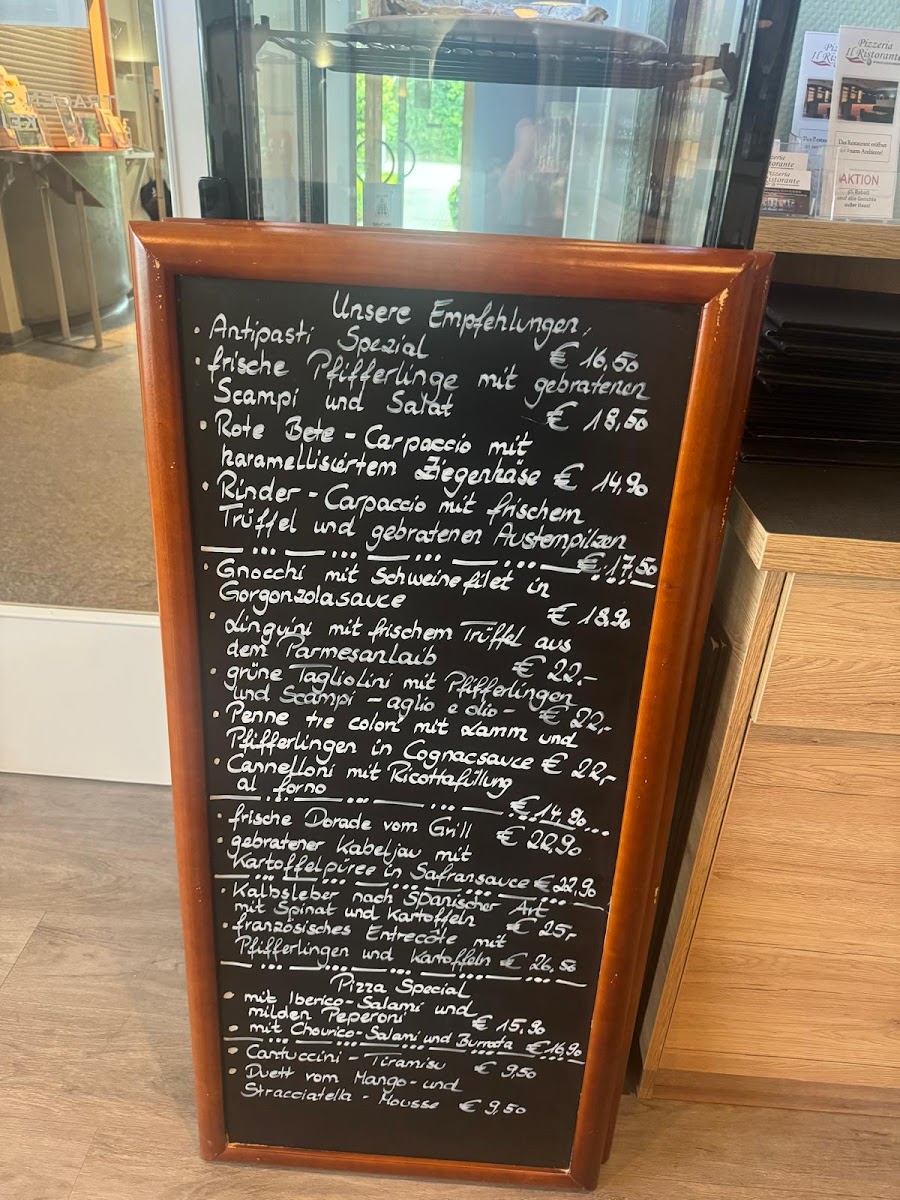 Pizzeria
Il Ristorante
Das Restaurant eröffnet
AKTION
Unsere Empfehlungen,
• Antipasti Spezial € 16,50
• frische Pfifferlinge mit gebratenen
Scampi und Salat € 18,50
• Rote Bete - Carpaccio mit
karamellisiertem Ziegenkäse € 14,90
• Rinder - Carpaccio mit frischem
Trüffel und gebratenen Austernpilzen
€ 17,50
• Gnocchi mit Schweinefilet in
Gorgonzolasauce € 18,90
• Linguini mit frischem Trüffel aus
dem Parmesanlaib € 22,-
• grüne Tagliolini mit Pfifferlingen
und Scampi - aglio e olio - € 22,-
• Penne tre colori mit Lamm und
Pfifferlingen in Cognacsauce € 22,-
• Cannelloni mit Ricottafüllung
al forno € 14,90
• frische Dorade vom Grill € 22,90
• gebratener Kabeljau mit
Kartoffelpüree in Safransauce € 22,90
• Kalbsleber nach Spanischer Art
mit Spinat und Kartoffeln € 25,-
• französisches Entrecôte mit
Pfifferlingen und Kartoffeln € 26,50
Pizza Special
• mit Iberico-Salami und
milden Peperoni € 15,90
• mit Chourico-Salami und Burrata € 16,90
• Cantuccini - Tiramisu € 9,50
• Duett vom Mango- und
Stracciatella - Mousse € 9,50